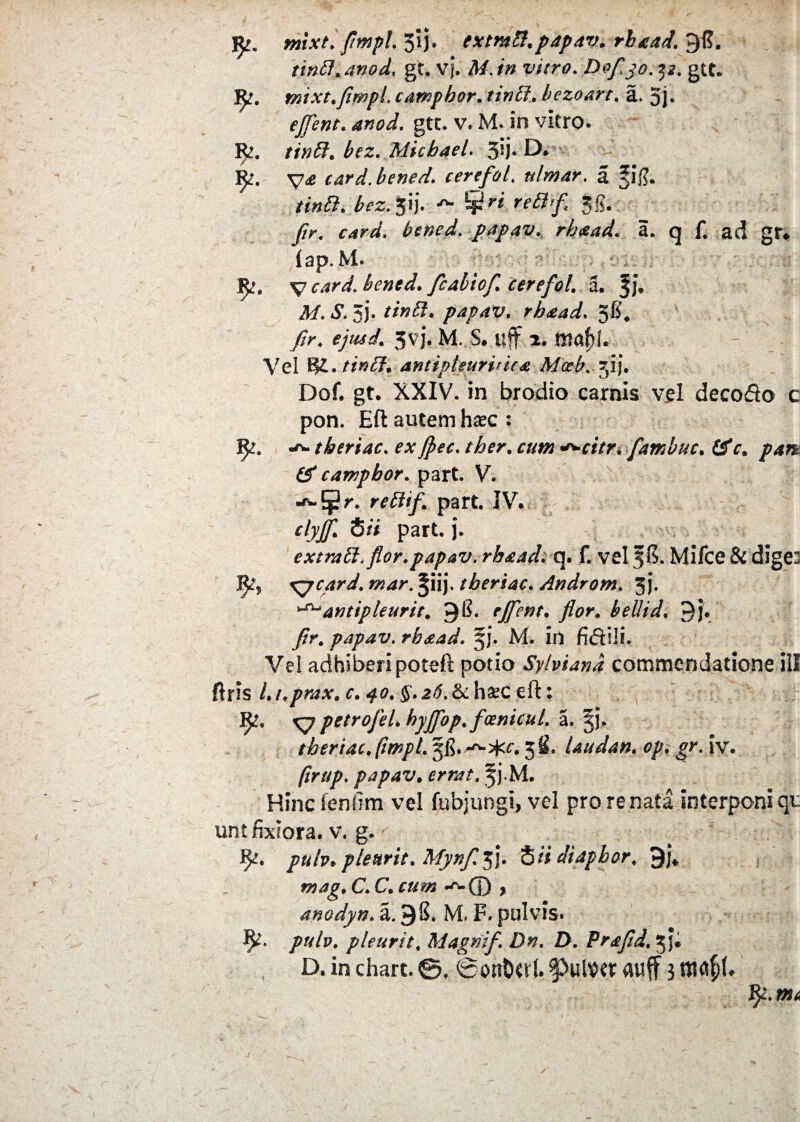 ℞. mixt. ſimpl. ʒij. extract. papav. rhæad. ℈ß.
tinct. anod. gt. vj. M. in vitro. Doſ. 30. 32. gtt.
℞. mixt. ſimpl. camphor. tinct. bezoart. ā. ʒj.
eſſent. anod. gtt. v. M. in vitro.
℞. tinct. bez. Michael. ʒij. D.
℞. 🜄æ card. bened. cerefol. ulmar. ā ℥iß.
tinct. bez. ʒij. 🜿ri rectif. ʒß.
ſir. card. bened. papav. rhæad. ā. q ſ. ad gr.
ſap. M.
℞. 🜄 card. bened. ſcabioſ. cerefol. ā. ℥j.
M. S. ʒj. tinct. papav. rhæad. ʒß.
ſir. ejusd. ʒvj. M. S. uff 2. mahl.
Vel ℞. tinct. antipleuriticæ Mœb. ʒij.
Doſ. gt. XXIV. in brodio carnis vel decocto c
pon. Eſt autem hæc :
℞. theriac. ex ſpec. ther. cum citr. ſambuc. &c. part
& camphor. part. V.
r. rectif. part. IV.
clyſſ. ♁ii part. j.
extract. flor. papav. rhæad. q. ſ. vel ℥ß. Miſce & dige
℞, 🜄 card. mar. ℥iij. theriac. Androm. ʒj.
antipleurit. ℈ß. eſſent. flor. bellid. ℈j.
ſir. papav. rhæad. ℥j. M. in fictili.
Vel adhiberi poteſt potio Sylvianâ commendatione ill
ſtris l. 1. prax. c. 40. §. 26. & hæc eſt :
℞. 🜄 petroſel. hyſſop. fœnicul. ā. ℥j.
theriac. ſimpl. ℥ß. 🞶c. ʒß. laudan. op. gr. iv.
ſirup. papav. errat. ℥j. M.
Hinc ſenſim vel ſubjungi, vel pro re natâ interponi qu
unt fixiora. v. g.
℞. pulv. pleurit. Mynſ. ʒj. ♁ii diaphor. ℈j.
mag. C. C. cum ,
anodyn. ā. ℈ß. M. F. pulvis.
℞. pulv. pleurit. Magniſ. Dn. D. Præſid. ʒj.
D. in chart. S. Sonderl. Pulver auff 3 mahl.
℞. ma